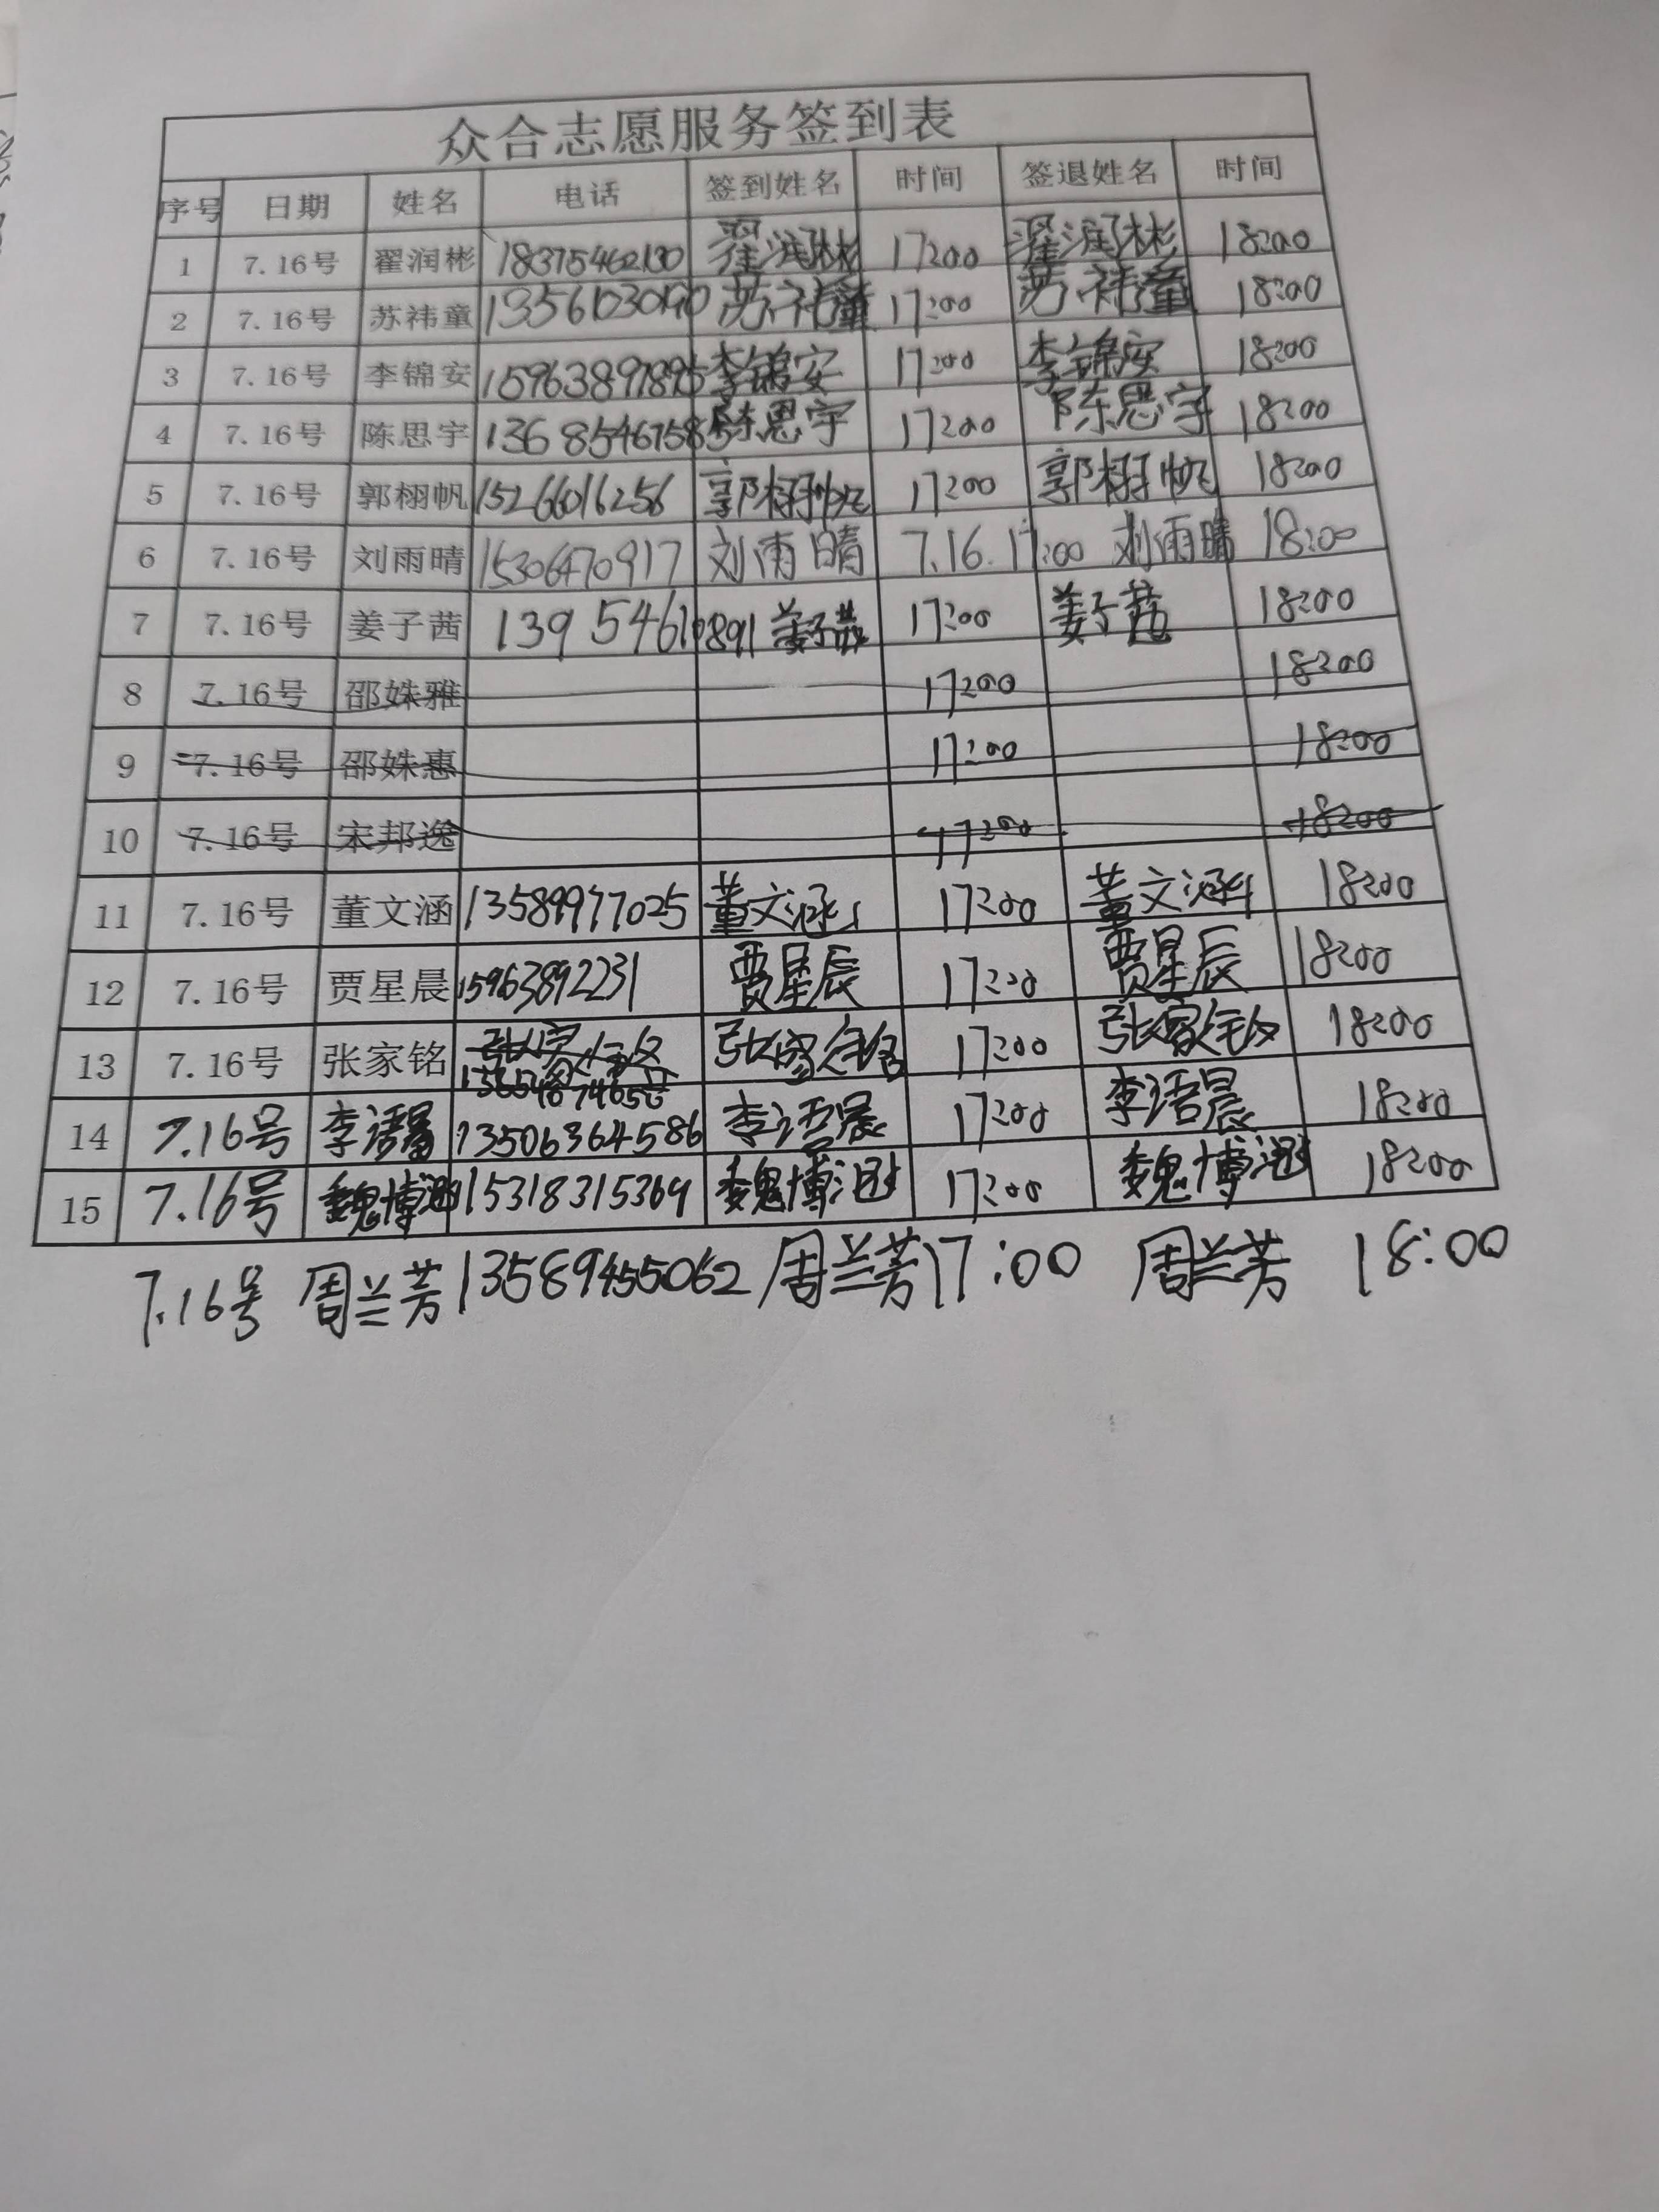 众合志愿服务签到表
序号 日期 姓名 电话 签到姓名 时间 签退姓名 时间
1 7.16号 翟润彬 18375462130 翟润彬 17:00 翟润彬 18:00
2 7.16号 苏祎童 苏祎童 17:00 苏祎童 18:00
3 7.16号 李锦安 15963897895 李锦安 17:00 李锦安 18:00
4 7.16号 陈思宇 13685467585 陈思宇 17:00 陈思宇 18:00
5 7.16号 郭栩帆 15266016256 郭栩帆 17:00 郭栩帆 18:00
6 7.16号 刘雨晴 15306470917 刘雨晴 7.16. 17:00 刘雨晴 18:00
7 7.16号 姜子茜 13954610891 姜子茜 17:00 姜子茜 18:00
8 7.16号 邵姝雅 17:00 18:00
9 7.16号 邵姝惠 17:00 18:00
10 7.16号 宋邦逸 17:00 18:00
11 7.16号 董文涵 13589977025 董文涵 17:00 董文涵 18:00
12 7.16号 贾星晨 15963892231 贾星辰 17:00 贾星辰 18:00
13 7.16号 张家铭 张家铭 17:00 张家铭 18:00
14 7.16号 李语晨 13506364586 李语晨 17:00 李语晨 18:00
15 7.16号 魏博涵 15318315369 魏博涵 17:00 魏博涵 18:00
7.16号 周兰芳 13589455062 周兰芳 17:00 周兰芳 18:00